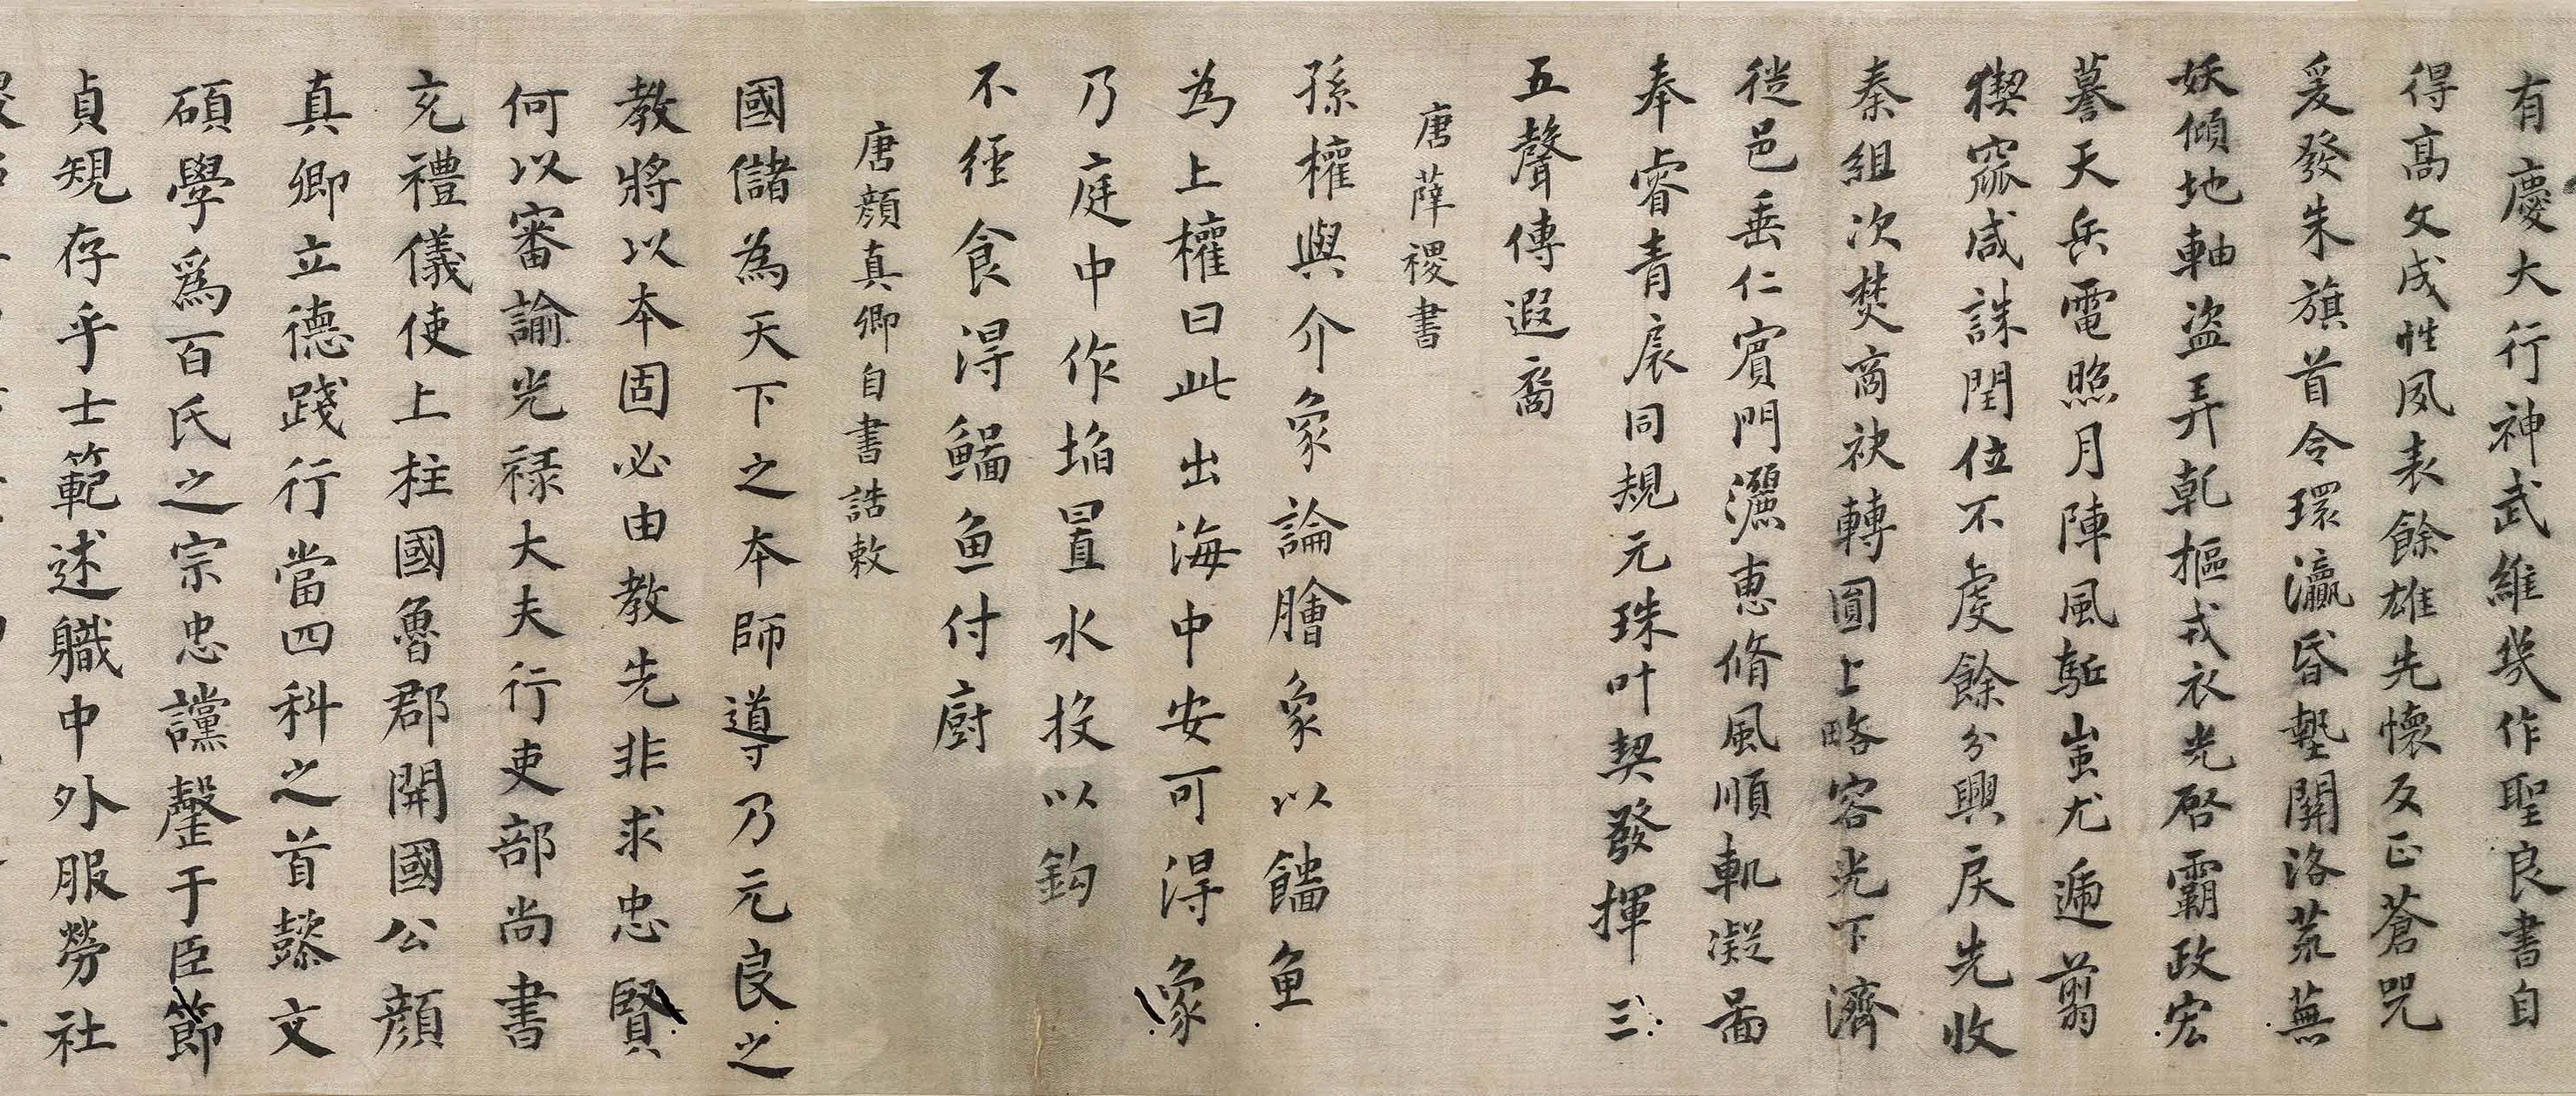 有慶大行神武維幾作聖良書自
得高文成性夙表餘雄先懷反正蒼咒
爰發朱旗首令環瀛昏墊關洛荒蕪
妖傾地軸盜弄乹摳戎衣光啓霸政宏
謩天兵電照月陣風駈蚩尤遄翦
猰窳咸誅閏位不虔餘分興戾先收
秦組次焚商袂轉圓上略容光下濟
從邑垂仁賓門灑惠脩風順軌凝啚
奉睿青扆同規元珠叶契發揮三
五聲傳遐裔
唐薛稷書
孫權與介象論膾象以鯔魚
為上權曰此出海中安可得象
乃庭中作埳置水投以鈎
不経食得鯔魚付廚
唐顔真卿自書誥敕
國儲為天下之本師導乃元良之
教將以本固必由教先非求忠賢
何以審諭光禄大夫行吏部尚書
充禮儀使上柱國魯郡開國公顔
真卿立德踐行當四科之首懿文
碩學爲百氏之宗忠讜罄于臣節
貞規存乎士範述職中外服勞社